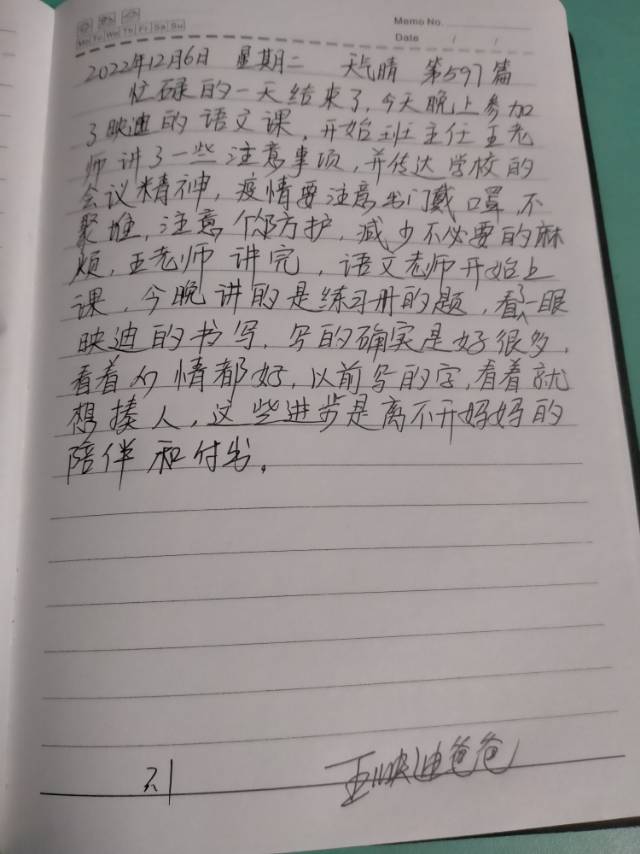 Memo No.
Mo Tu We Th Fr Sa Su
Date / /
2022年12月6日 星期二 天气晴 第597篇
忙碌的一天结束了,今天晚上参加
了映迪的语文课,开始班主任王老
师讲了一些注意事项,并传达学校的
会议精神,疫情要注意出门戴口罩,不
聚堆,注意个防护,减少不必要的麻
烦,王老师讲完,语文老师开始上
课,今晚讲的是练习册的题,看了一眼
映迪的书写,写的确实是好很多,
看着心情都好,以前写的字,看着就
想揍人,这些进步是离不开妈妈的
陪伴和付出。
王映迪爸爸